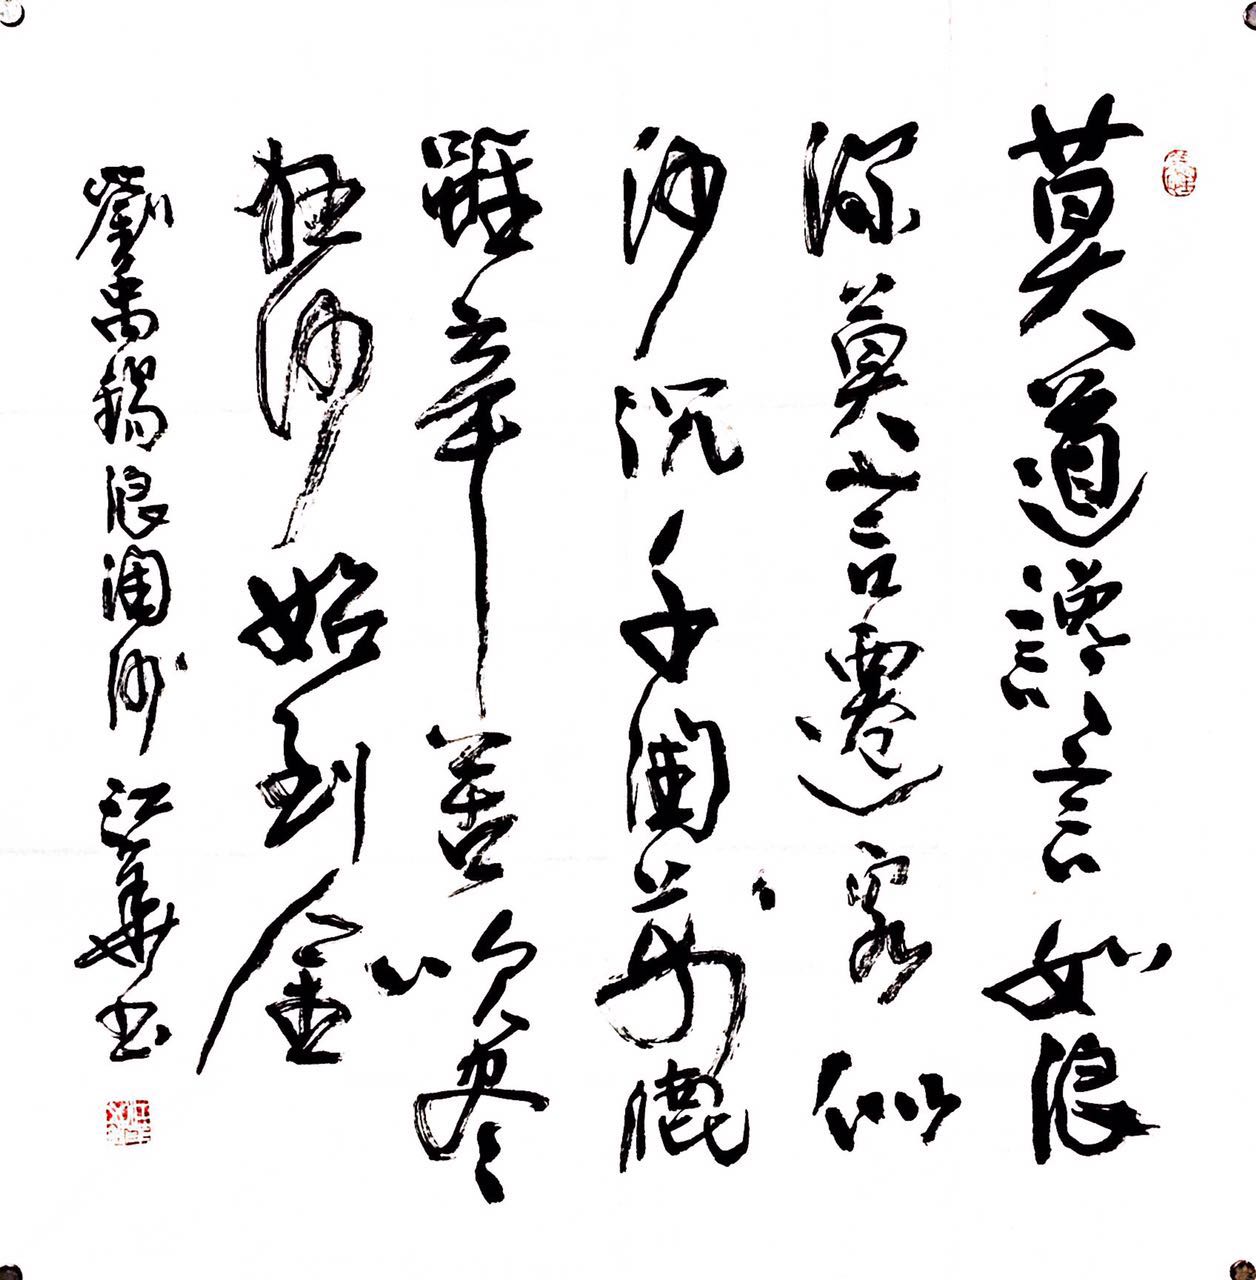 莫道讒言如浪
深莫言遷客似
沙沉千淘萬漉
雖辛苦吹尽
狂沙始到金
劉禹錫浪淘沙江華书